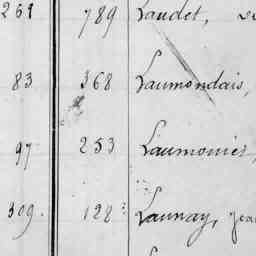 261 789 Laudet,
83 368 Laumondais,
97 253 Laumonier,
309. 128 Launay, Jea